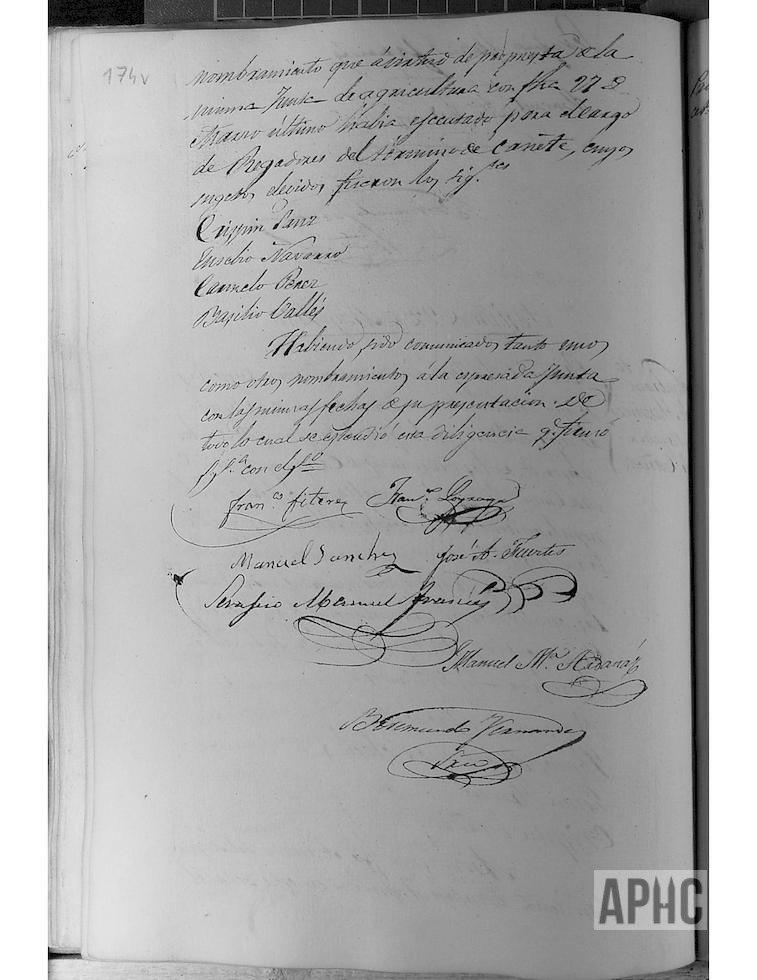 174v
nombramiento que á virtud de propuesta de la
misma Junta de agricultura con fha 27 de
Marzo último habia ejecutado para el cargo
de Regadores del término de Cañete, cuyos
sugetos elegidos fueron los sig.tes
Crispin Sanz
Eusebio Navarro
Carmelo Perez
Basilio Vallés
Habiendo sido comunicados tanto unos
como otros nombramientos á la espresada Junta
con las mismas fechas de su presentacion. De
todo lo cual se estendió esta diligencia q. firmó
con el
Fran.co Fiteres
Fran.co Loysonga
Manuel Sanchez
José A. Fuertes
Serafin Manuel
Manuel M.a Adanáz
Bersemundo Fernandez
Srio
APHC